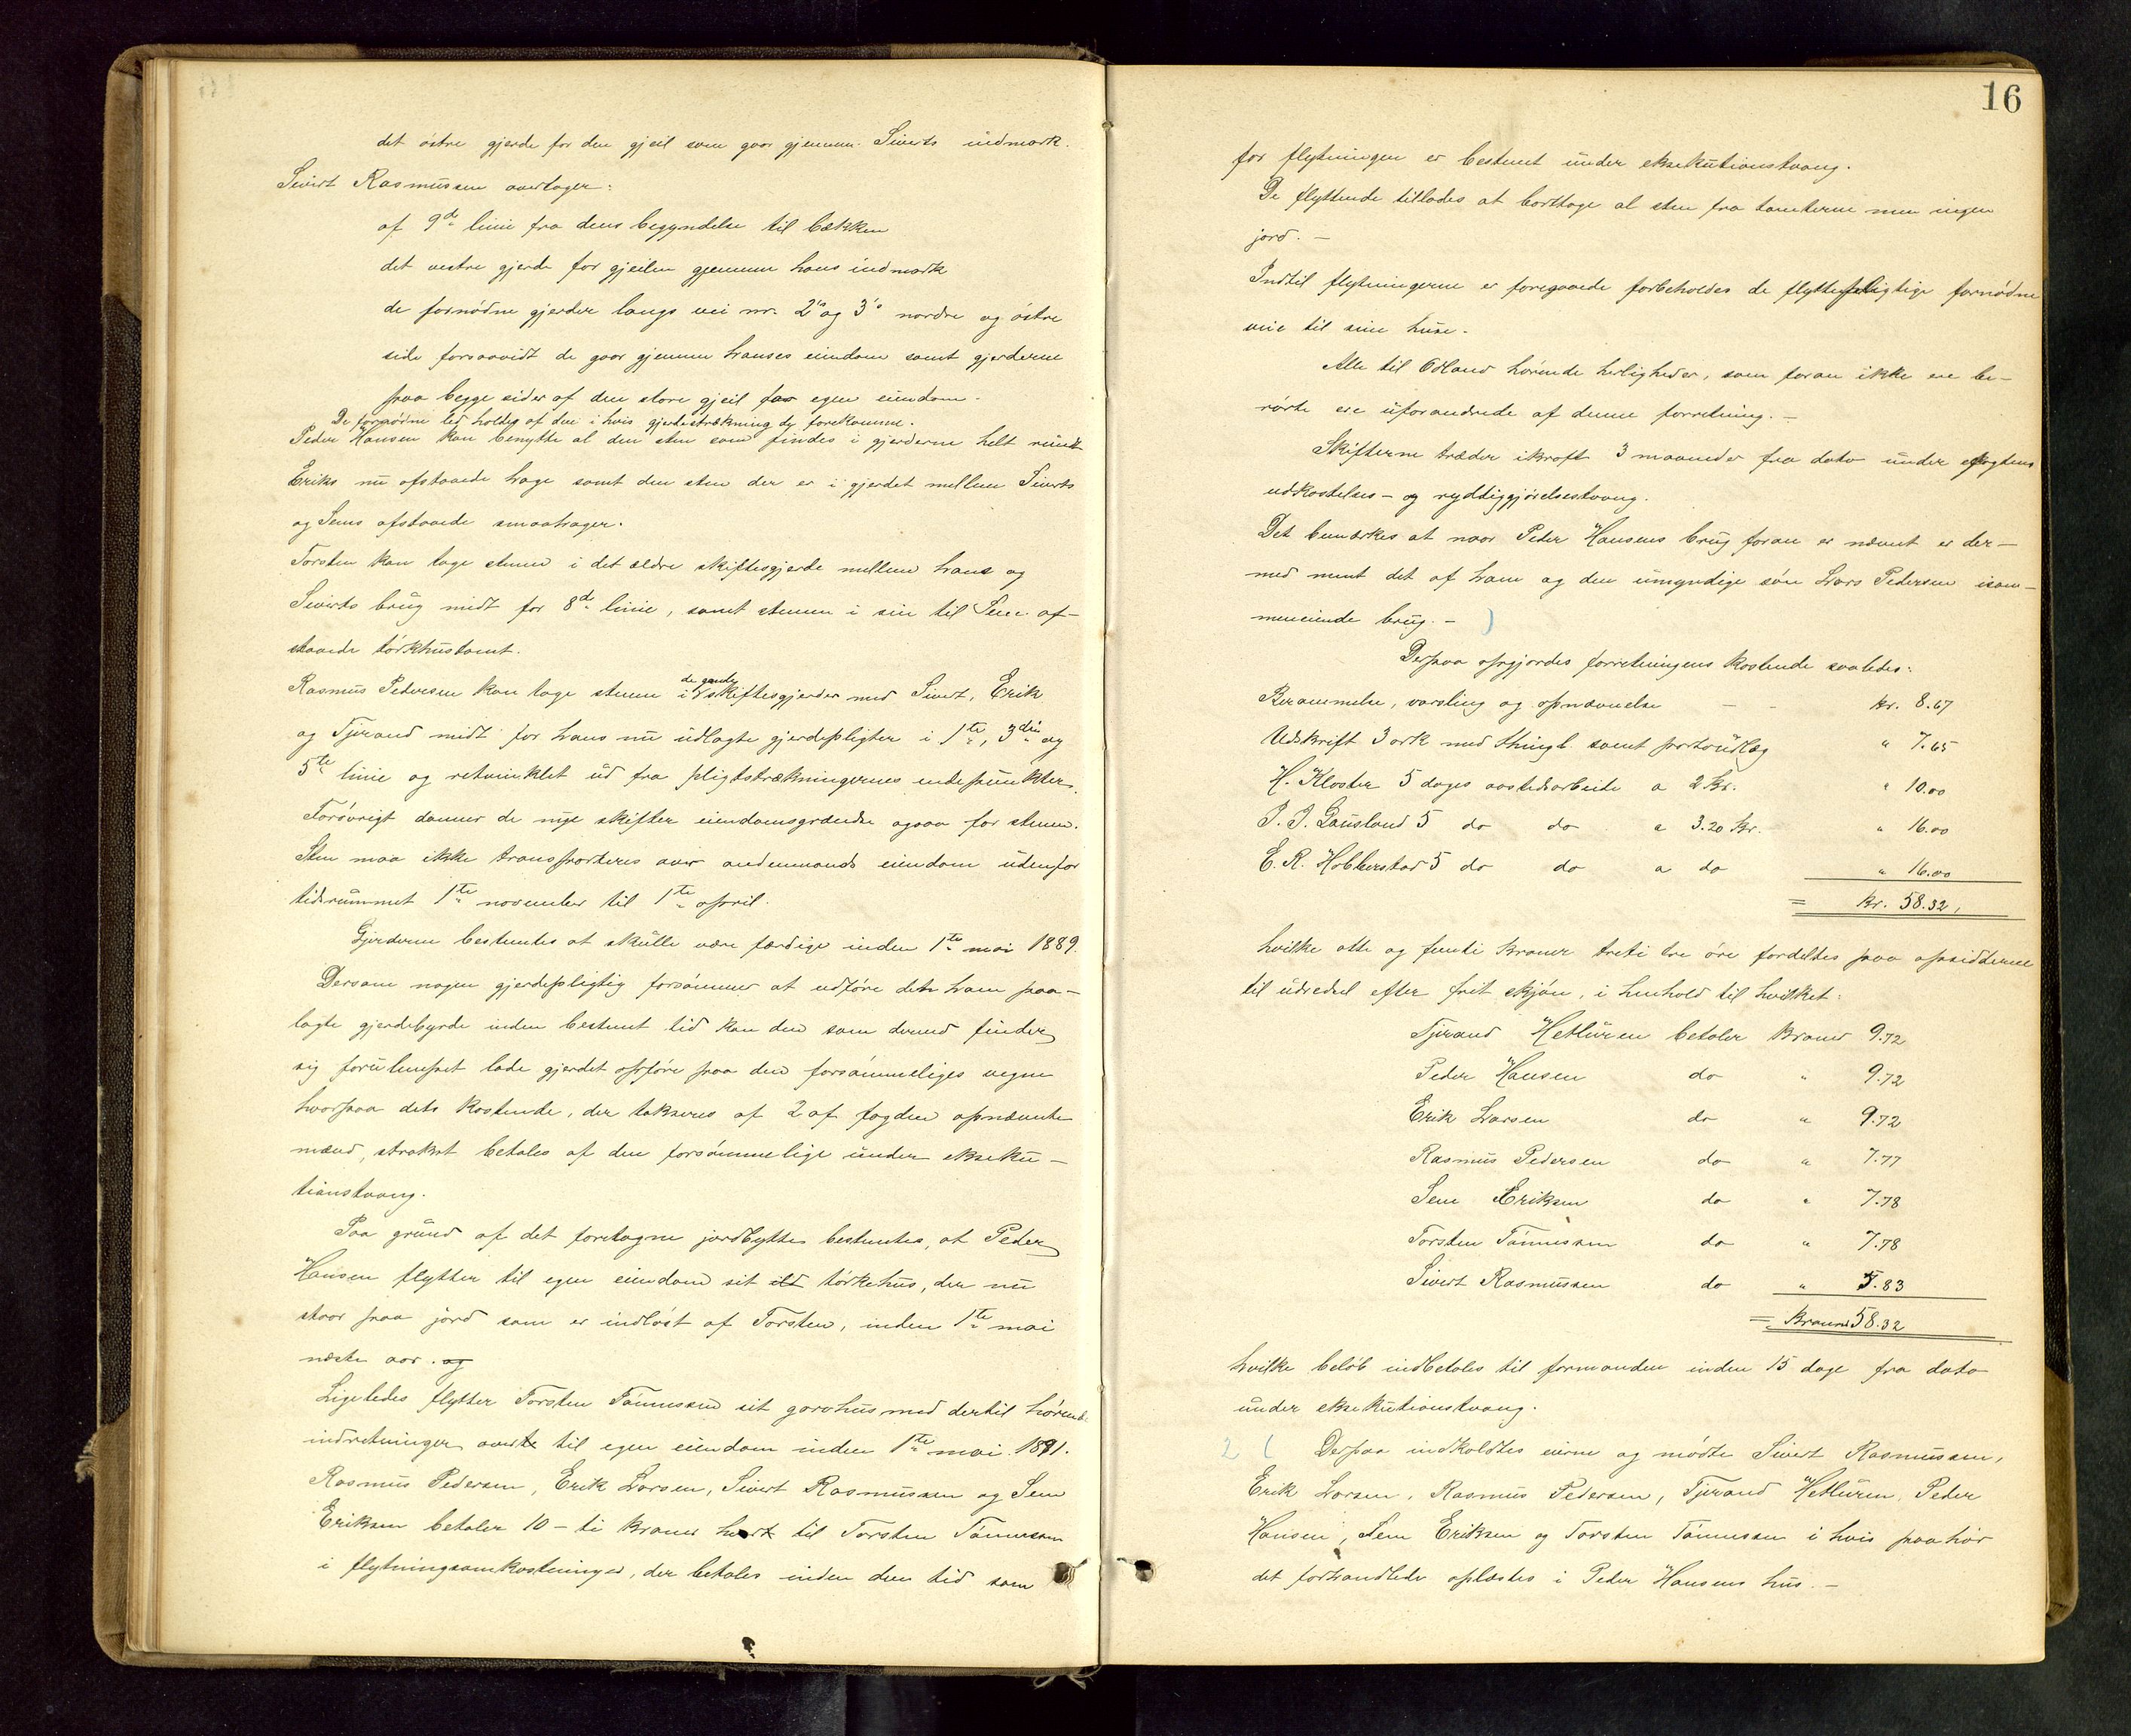 det östre gjerde for den gjeil som gaar gjennem Siverts indmark.
Sivert Rasmussen overtager:
af 9de linie fra dens begyndelse til bækken
det vestre gjerde for gjeilen gjennem hans indmark
de fornødne gjerder langs vei nr. 2's og 3's nordre og östre
side forsaavidt de gaar gjennem hanses eiendom samt gjerderne
paa begge sider af den store gjeil for egen eiendom.
De fornødne led holdes af den i hvis gjerdestrækning de forekomme.
Peder Hansen kan benytte al den sten som findes i gjerderne helt rundt
Eriks nu afstaaede hage samt den sten der er i gjerdet mellem Siverts
og Sems afstaaede smaahager.
Torsten kan tage stenen i det ældre skiftesgjerde mellem hans og
Siverts brug midt for 8de linie, samt stenen i sin til Sem af-
staaede törkhustomt.
Rasmus Pedersen kan tage stenen i de gamle skiftesgjerder med Sivert, Erik
og Tjerand midt for hans nu udlagte gjerdepligter i 1te, 3die og
5te linie og retvinklet ud fra pligtstrækningernes endepunkter.
Forövrigt danner de nye skifter eiendomsgrændse ogsaa for stenen.
Sten maa ikke transporteres over andenmands eiendom udenfor
tidsrummet 1te november til 1te april.
Gjerderne bestemtes at skulle være færdige inden 1te mai 1889.
Dersom nogen gjerdepligtig forsömmer at udföre den ham paa-
lagte gjerdebyrde inden bestemt tid kan den som derved finder
sig forulempet lade gjerdet opföre paa den forsömmeliges vegne
hvorpaa dets kostende, der takseres af 2 af fogden opnævnte
mænd, strakst betales af den forsömmelige under ekseku-
tionstvang.
Paa grund af det foretagne jordbytte bestemtes, at Peder
Hansen flytter til egen eiendom sit ild törkehus, der nu
staar paa jord som er indlöst af Torsten, inden 1te mai
næste aar. og
Ligeledes flytter Torsten Tönnessen sit gardhus med dertil hörende
indretninger over til egen eiendom inden 1te mai 1891.
Rasmus Pedersen, Erik Larsen, Sivert Rasmussen og Sem
Eriksen betaler 10 – ti kroner hver til Torsten Tönnessen
i flytningsomkostninger, der betales inden den tid som
16
for flytningen er bestemt under eksekutionstvang.
De flyttende tillades at borttage al sten fra tomterne men ingen
jord. –
Indtil flytningerne er foregaaede forbeholdes de flyttepligtige fornødne
veie til sine huse.
Alle til Ødland hörende herligheder, som foran ikke ere be-
rørte ere uforandrede af denne forretning. –
Skifterne træder ikraft 3 maaneder fra dato under
udkastelses- og ryddiggjörelsestvang.
Det bemærkes at naar Peder Hansens brug foran er nævnt er der-
med ment det af ham og den umyndige sön Lars Pedersen isam-
meneiende brug. – )
Derpaa opgjordes forretningens kostende saaledes:
Berammelse, varsling og opnævnelse – – kr. 8.67
Udskrift 3 ark med thingl. samt portoudlæg " 7.65
H. Kloster 5 dages aastedsarbeide a 2 kr. " 10.00
J. J. Gausland 5 do do a 3.20 kr. " 16.00
E. R. Hobberstad 5 do do a do " 16.00
= kr. 58.32,
hvilke otte og femti kroner treti to öre fordeltes paa opsidderne
til udredsel efter frit skjön, i henhold til hvilket:
Tjerand Hetluren betaler kroner 9.72
Peder Hansen do " 9.72
Erik Larsen do " 9.72
Rasmus Pedersen do " 7.77
Sem Eriksen do " 7.78
Torsten Tönnessen do " 7.78
Sivert Rasmussen do " 5.83
= Kroner 58.32
hvilke belöb indbetales til formanden inden 15 dage fra dato
under eksekutionstvang.
2 ( Derpaa indkaldtes eierne og mödte Sivert Rasmussen,
Erik Larsen, Rasmus Pedersen, Tjerand Hetluren, Peder
Hansen, Sem Eriksen og Torsten Tönnessen i hvis paahör
det forhandlede oplæstes i Peder Hansens hus. –